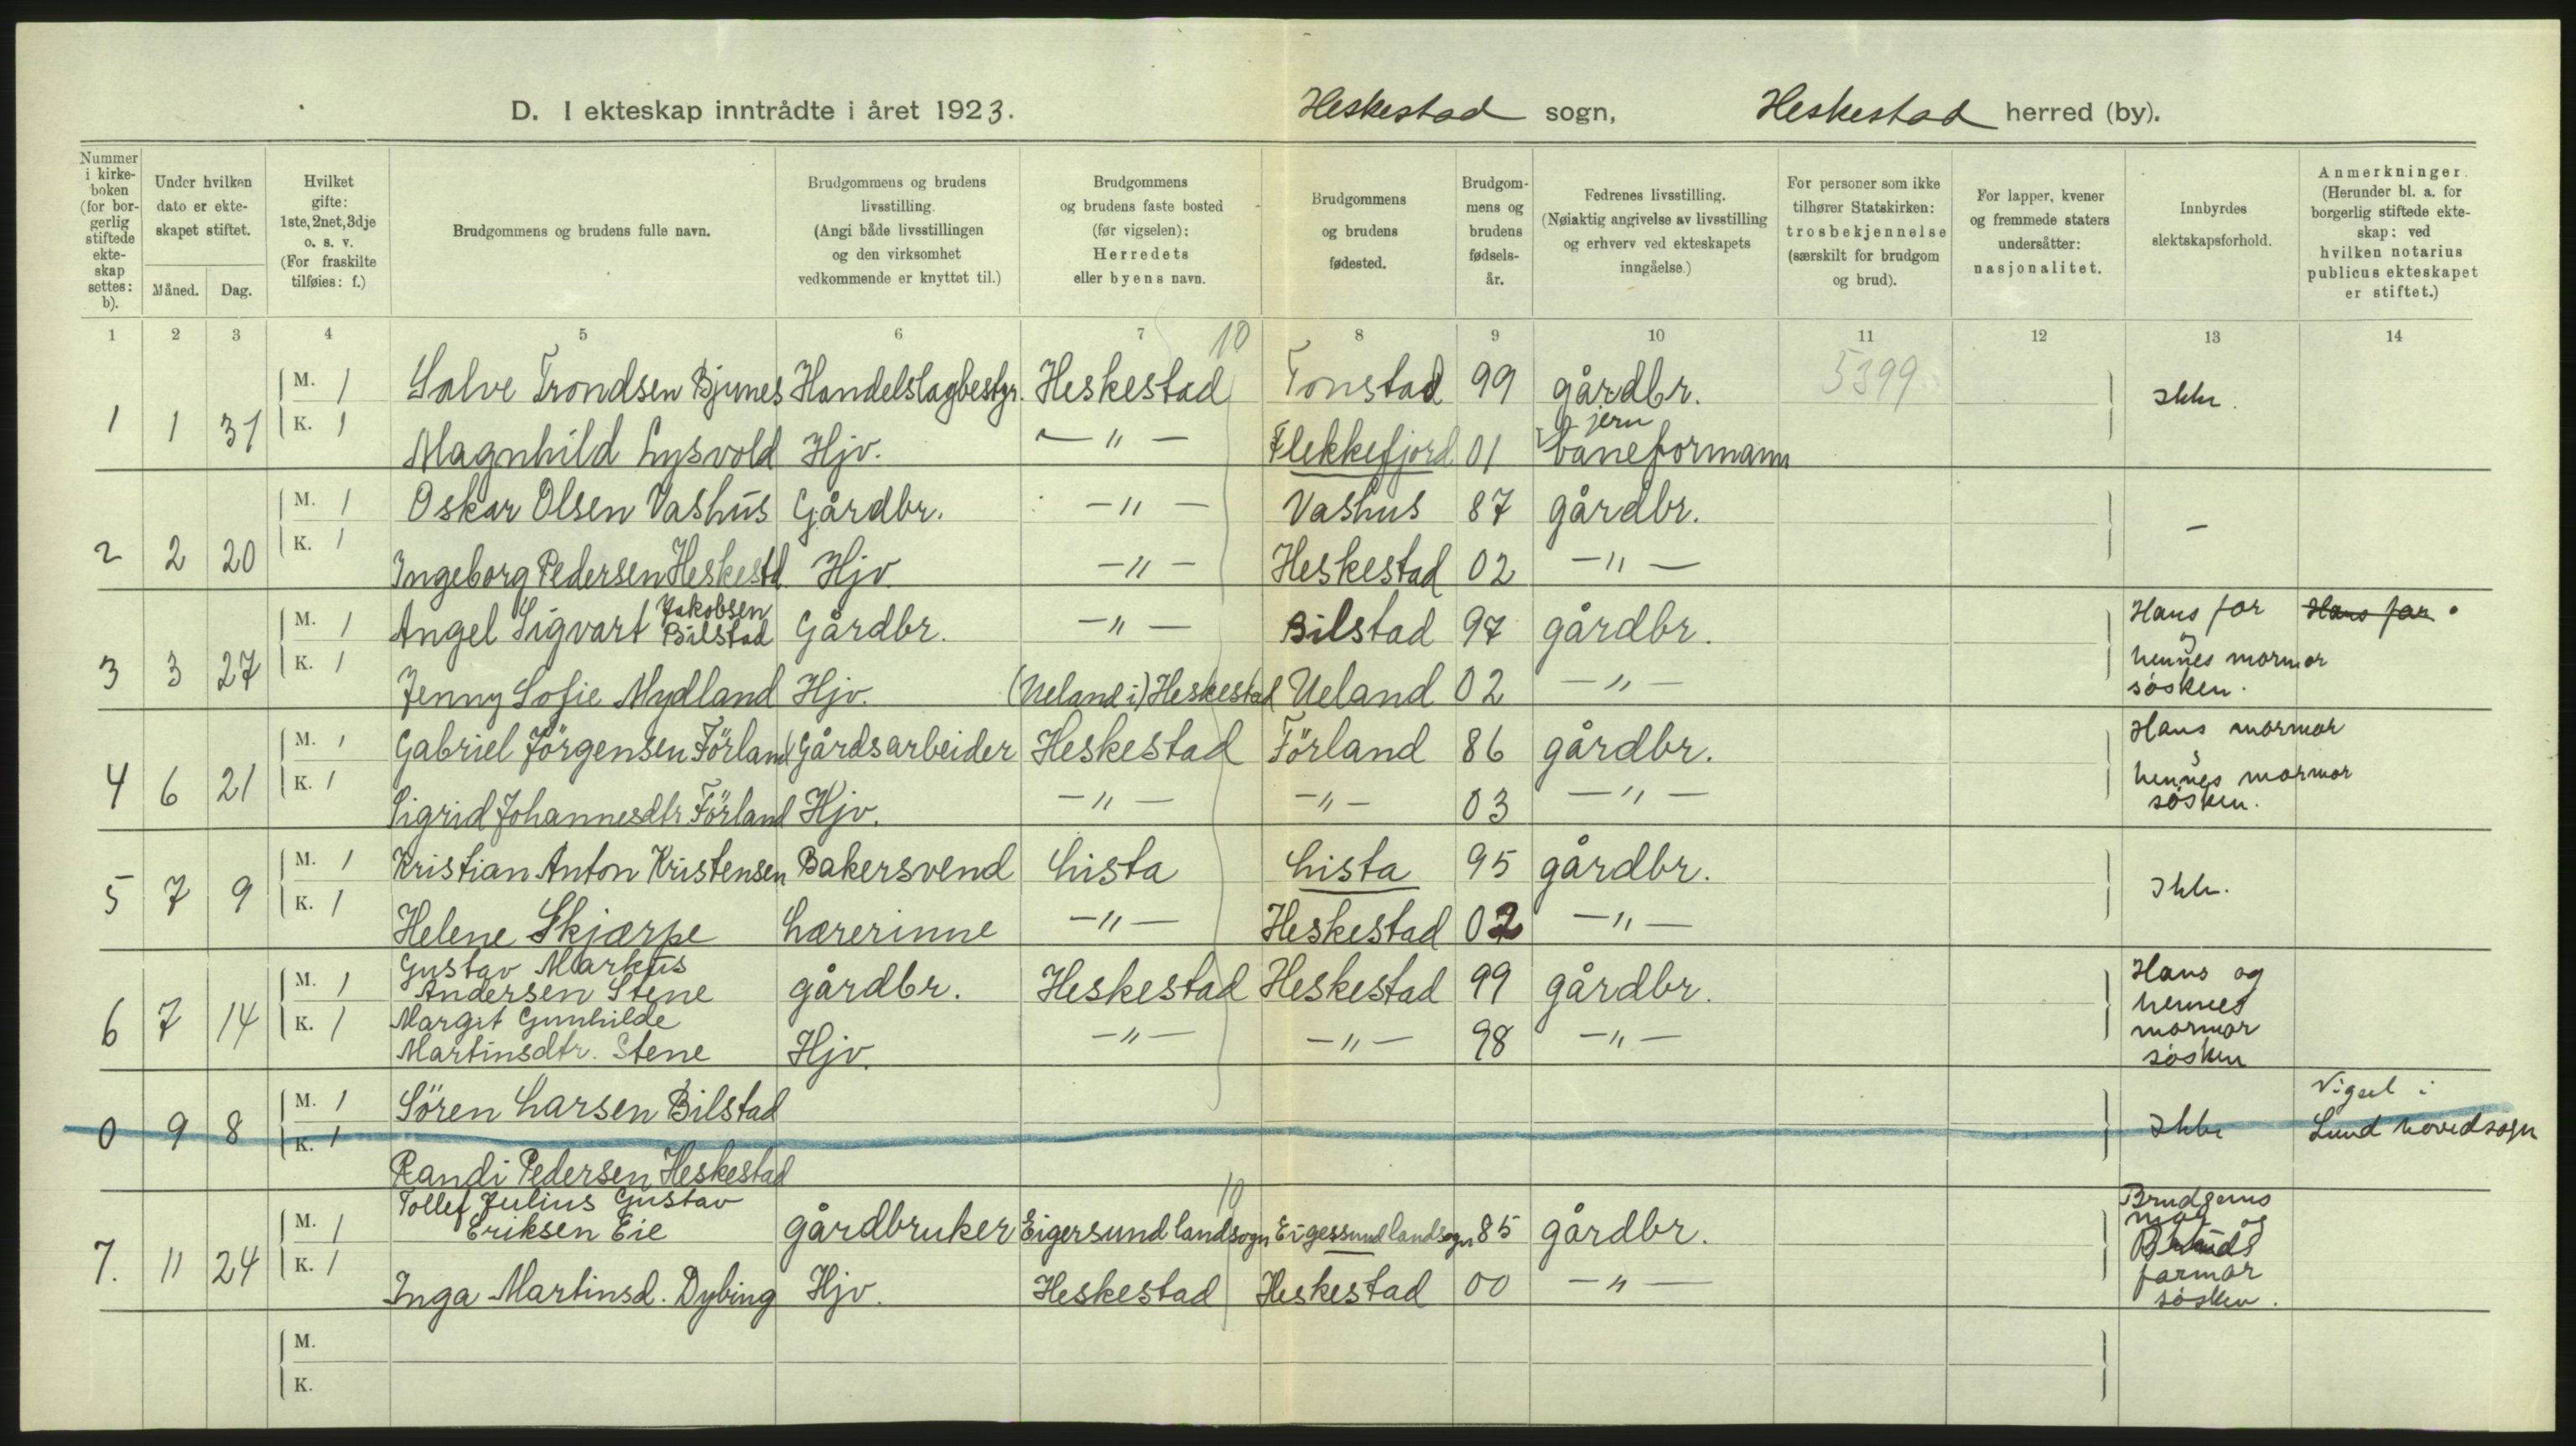 D. I ekteskap inntrådte i året 1923. Heskestad sogn, Heskestad herred (by).
Nummer i kirke-boken (for bor-gerlig stiftede ekte-skap settes: b).
Under hvilken dato er ekte-skapet stiftet.
Måned. Dag.
Hvilket gifte: 1ste, 2net, 3dje o. s. v. (For fraskilte tilføies: f.)
Brudgommens og brudens fulle navn.
Brudgommens og brudens livsstilling. (Angi både livsstillingen og den virksomhet vedkommende er knyttet til.)
Brudgommens og brudens faste bosted (før vigselen): Herredets eller byens navn.
Brudgommens og brudens fødested.
Brudgom-mens og brudens fødsels-år.
Fedrenes livsstilling. (Nøiaktig angivelse av livsstilling og erhverv ved ekteskapets inngåelse.)
For personer som ikke tilhører Statskirken: trosbekjennelse (særskilt for brudgom og brud).
For lapper, kvener og fremmede staters undersåtter: nasjonalitet.
Innbyrdes slektskapsforhold.
Anmerkninger. (Herunder bl. a. for borgerlig stiftede ekte-skap: ved hvilken notarius publicus ekteskapet er stiftet.)
1 2 3 4 5 6 7 8 9 10 11 12 13 14
10
M. 1 Salve Trondsen Bjunes Handelslagbestyr. Heskestad Tonstad 99 gårdbr. 5399
1 1 31 K. 1 Ikke.
Magnhild Lysvold Hjv. — " — Flekkefjord 01 jern baneformann
M. 1 Oskar Olsen Vashus Gårdbr. — " — Vashus 87 gårdbr.
2 2 20 K. 1 —
Ingeborg Pedersen Heskestd. Hjv. — " — Heskestad 02 — " —
M. 1 Angel Sigvart Jakobsen Bilstad Gårdbr. — " — Bilstad 97 gårdbr. Hans far Hans far
3 3 27 K. 1 og hennes mormor
Jenny Sofie Mydland Hjv. (Ueland i) Heskestad Ueland 02 — " — søsken.
M. 1 Gabriel Jörgensen Förland Gårdsarbeider Heskestad Förland 86 gårdbr. Hans mormor
4 6 21 K. 1 og hennes mormor
Sigrid Johannesdtr Förland Hjv. — " — — " — 03 — " — søsken.
M. 1 Kristian Anton Kristensen Bakersvend Lista Lista 95 gårdbr.
5 7 9 K. 1 Ikke.
Helene Skjærpe Lærerinne — " — Heskestad 02 — " —
M. 1 Gustav Markus Andersen Stene gårdbr. Heskestad Heskestad 99 gårdbr. Hans og
6 7 14 K. 1 hennes mormor
Margit Gunhilde Martinsdtr. Stene Hjv. — " — — " — 98 — " — søsken
M. 1 Sören Larsen Bilstad Vigsel i
0 9 8 K. 1 Ikke Lund hovedsogn
Randi Pedersen Heskestad
10
M. 1 Tollef Julius Gustav Eriksen Eie gårdbruker Eigersund landsogn Eigessund landsogn 85 gårdbr. Brudgoms
7. 11 24 K. 1 mor og Bruds
Inga Martinsd. Dybing Hjv. Heskestad Heskestad 00 — " — farmor søsken.
M.
K.